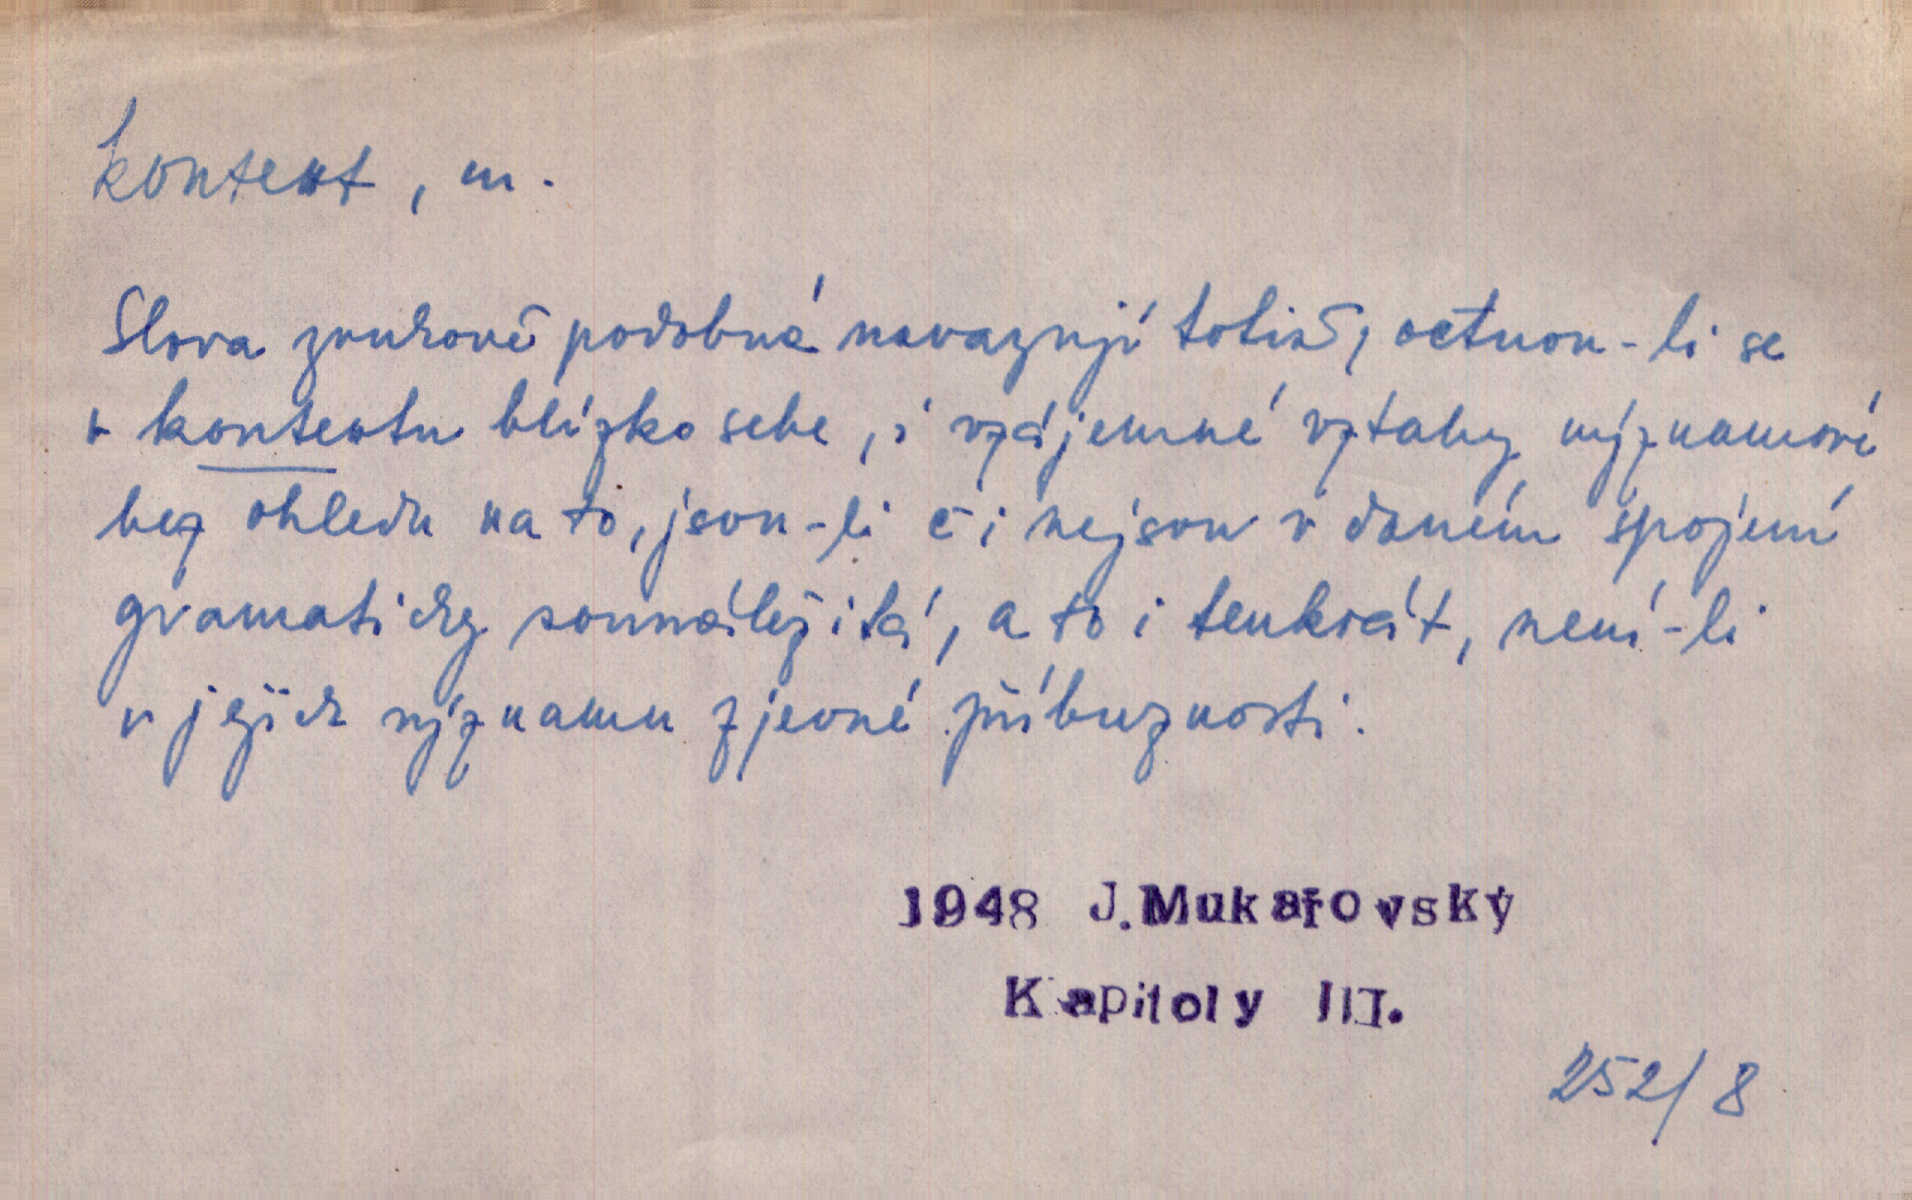 kontext, m.
Slova zvukově podobná navazují totiž, octnou-li se
v kontextu blízko sebe, i vzájemné vztahy významové
bez ohledu na to, jsou-li či nejsou v daném spojení
gramaticky sounáležitá, a to i tenkrát, není-li
v jejich významu zjevné příbuznosti.
1948 J. Mukařovský
Kapitoly III.
252/8